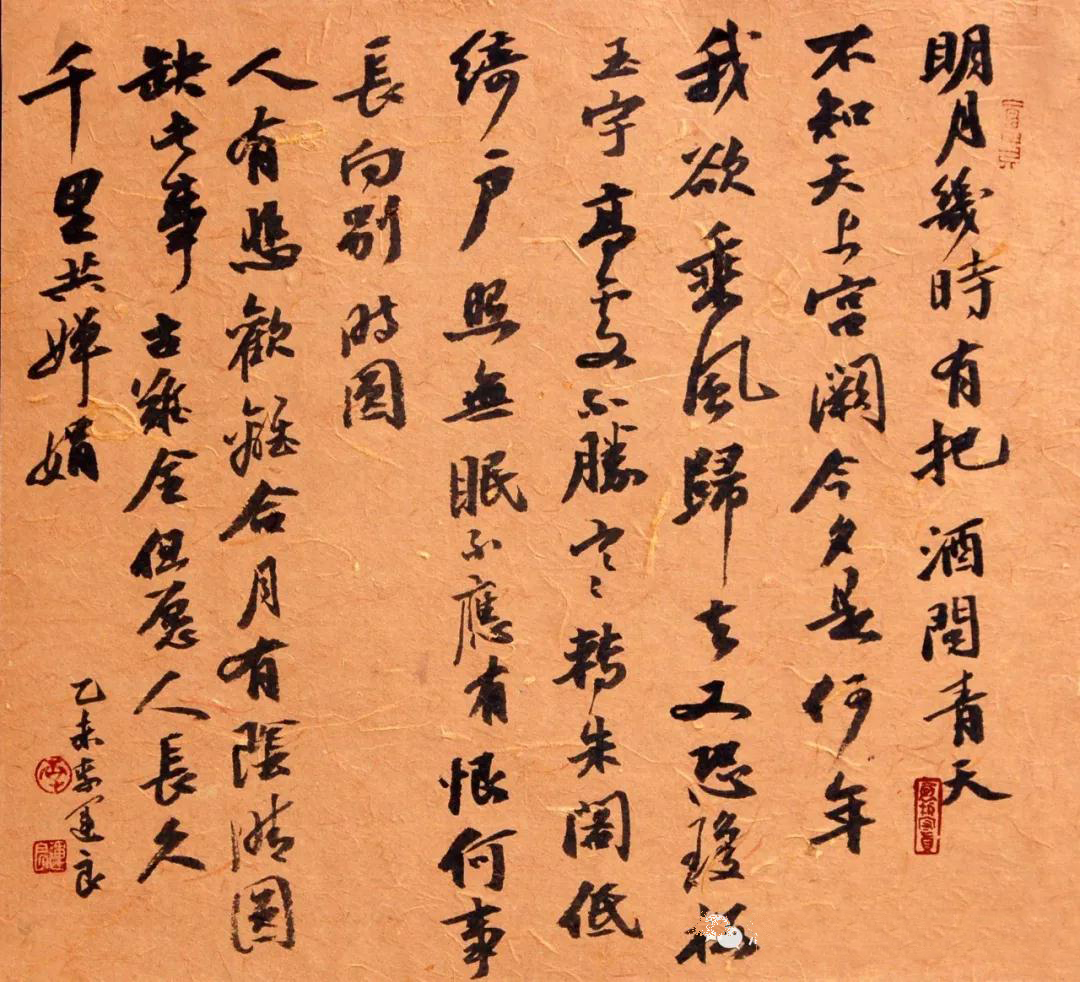 明月幾時有把酒問青天
不知天上宮闕今夕是何年
我欲乘風歸去又恐瓊樓
玉宇高處不勝寒轉朱閣低
綺戶照無眠不應有恨何事
長向別時圓
人有悲歡離合月有陰晴圓
缺此事古難全但愿人長久
千里共嬋娟
乙未李運良